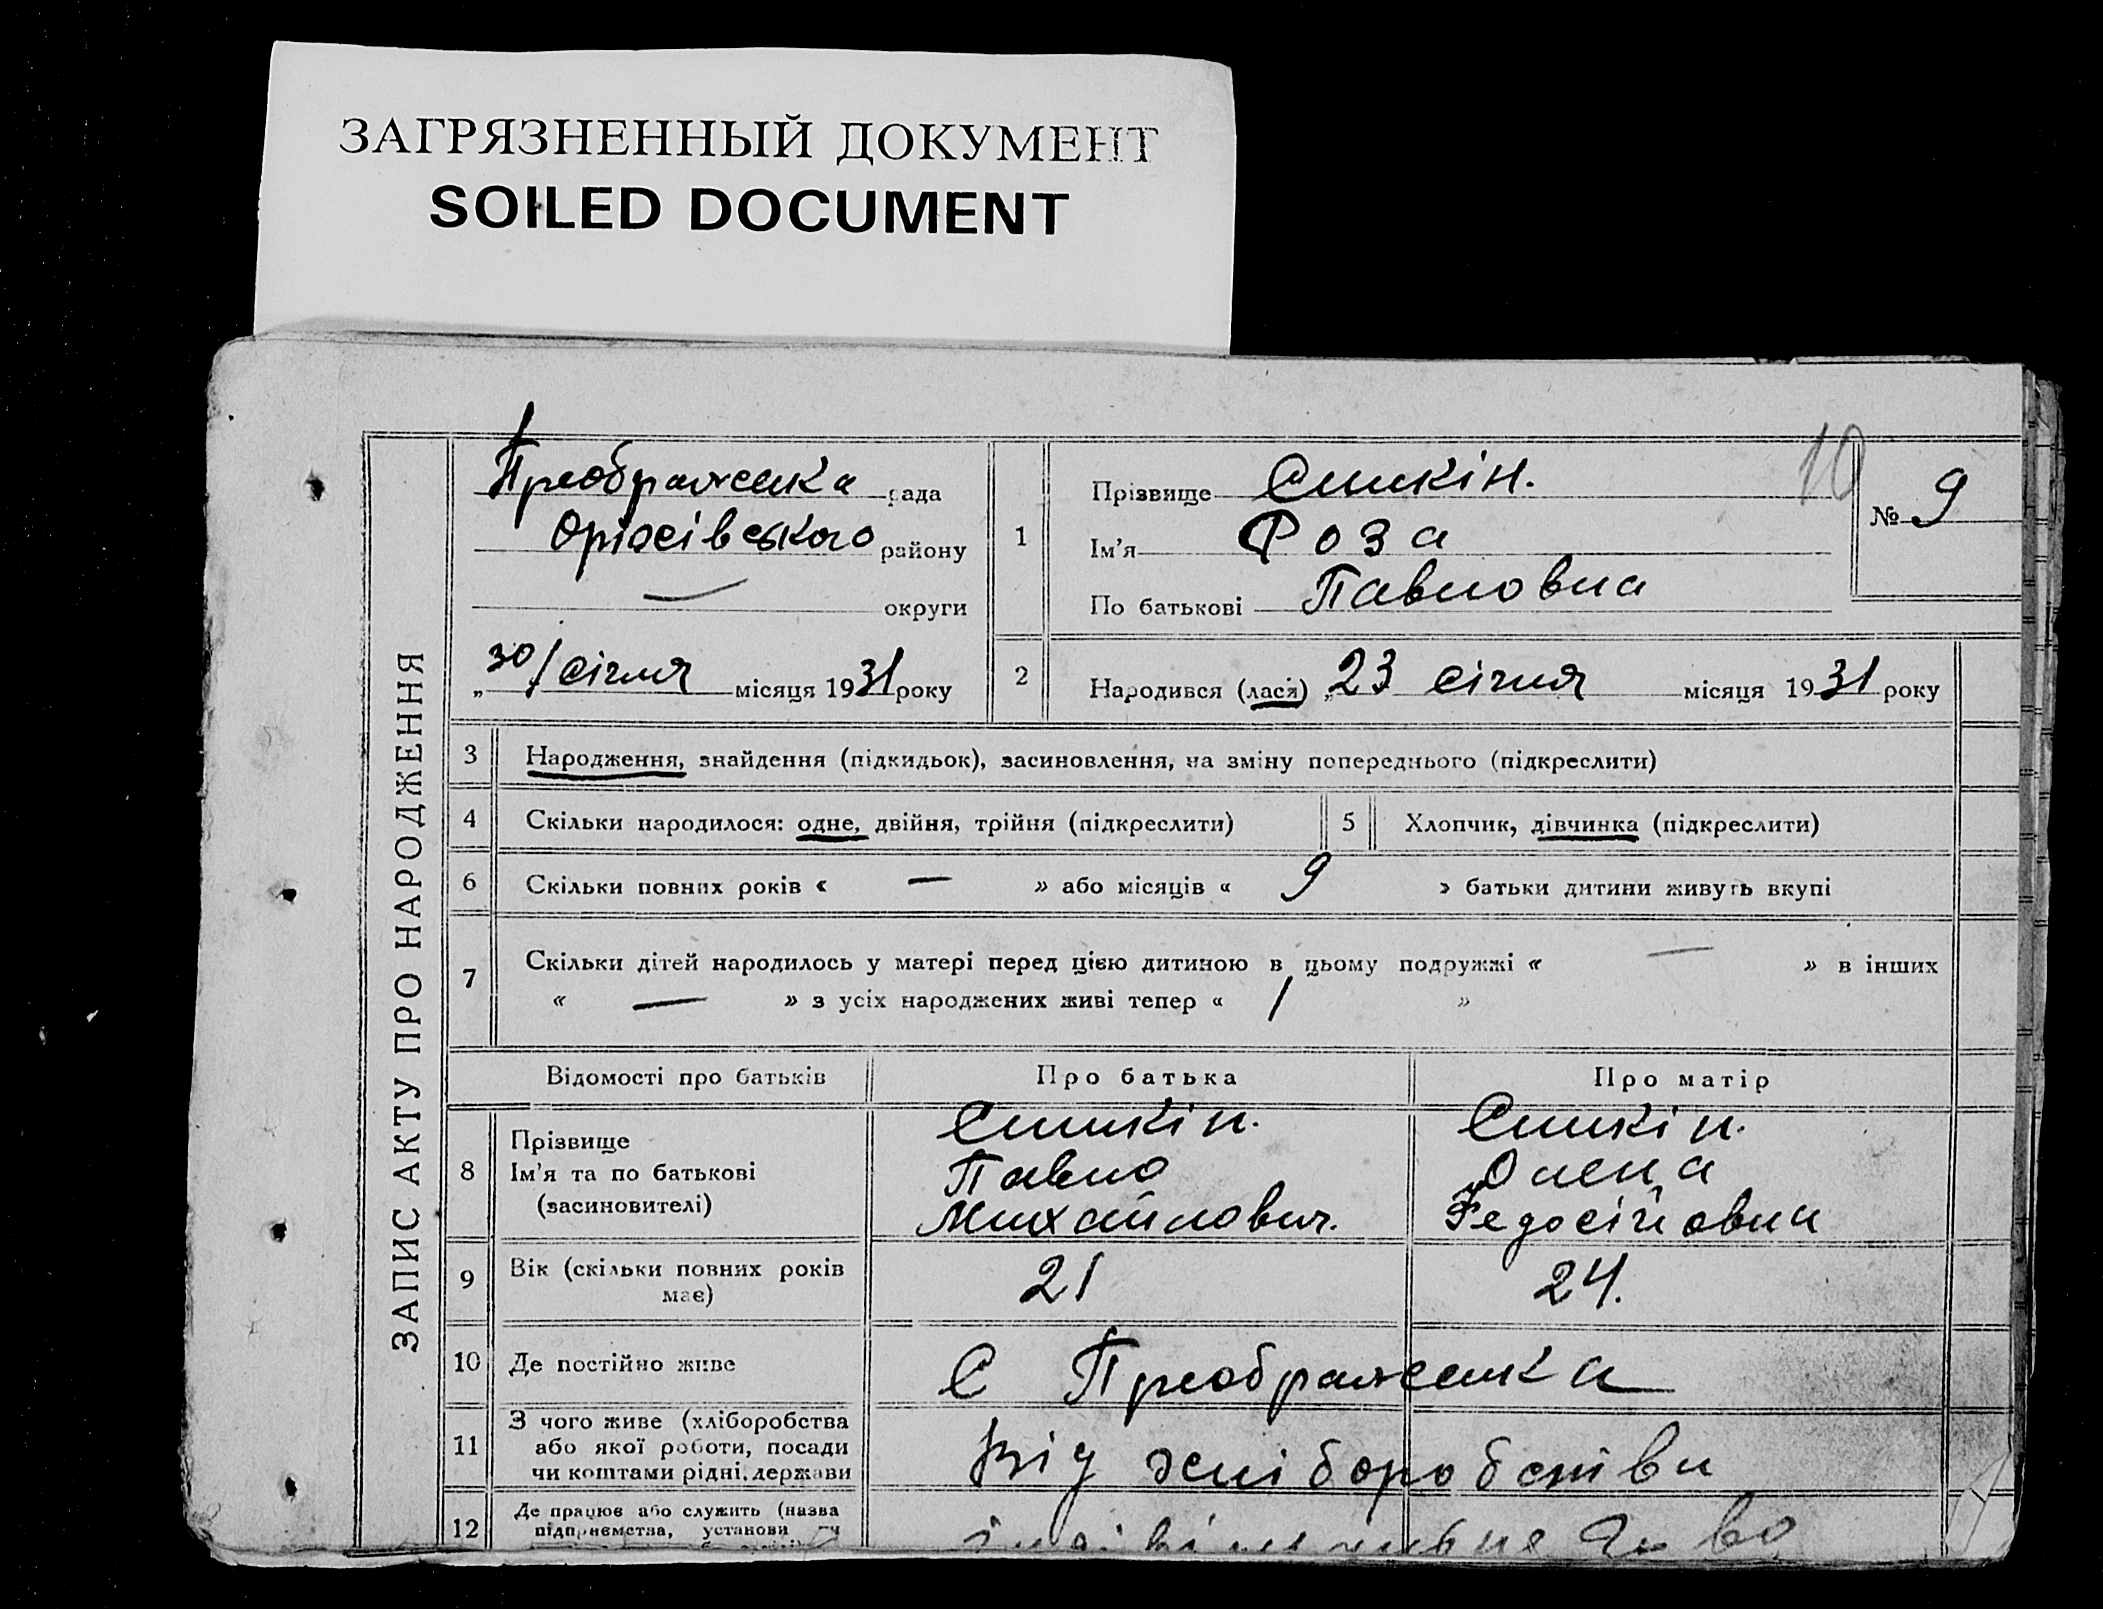 ЗАГРЯЗНЕННЫЙ ДОКУМЕНТ
SOILED DOCUMENT
ЗАПИС АКТУ ПРО НАРОДЖЕННЯ
Преображенка рада
Оріхівського району
— округи
„30/січня місяця 1931 року
1
Прізвище Сишкін.
Ім'я Роза
По батькові Павловна
10
№ 9
2
Народився (лася) „23 січня місяця 1931 року
3 Народження, знайдення (підкидьок), засиновлення, на зміну попереднього (підкреслити)
4 Скільки народилося: одне, двійня, трійня (підкреслити)
5 Хлопчик, дівчинка (підкреслити)
6 Скільки повних років « — » або місяців « 9 » батьки дитини живуть вкупі
7 Скільки дітей народилось у матері перед цією дитиною в цьому подружжі « — » в інших
« — » з усіх народжених живі тепер « 1 »
Відомості про батьків Про батька Про матір
8
Прізвище
Ім'я та по батькові
(засиновителі)
Сишкін.
Павло
Михайлович.
Сишкін.
Олена
Федосіївни
9
Вік (скільки повних років
має)
21
24.
10 Де постійно живе
С Преображенка
11
З чого живе (хліборобства
або якої роботи, посади
чи коштами рідні, держави
Від хліборобства
12
Де працює або служить (назва
підприємства, установи чи